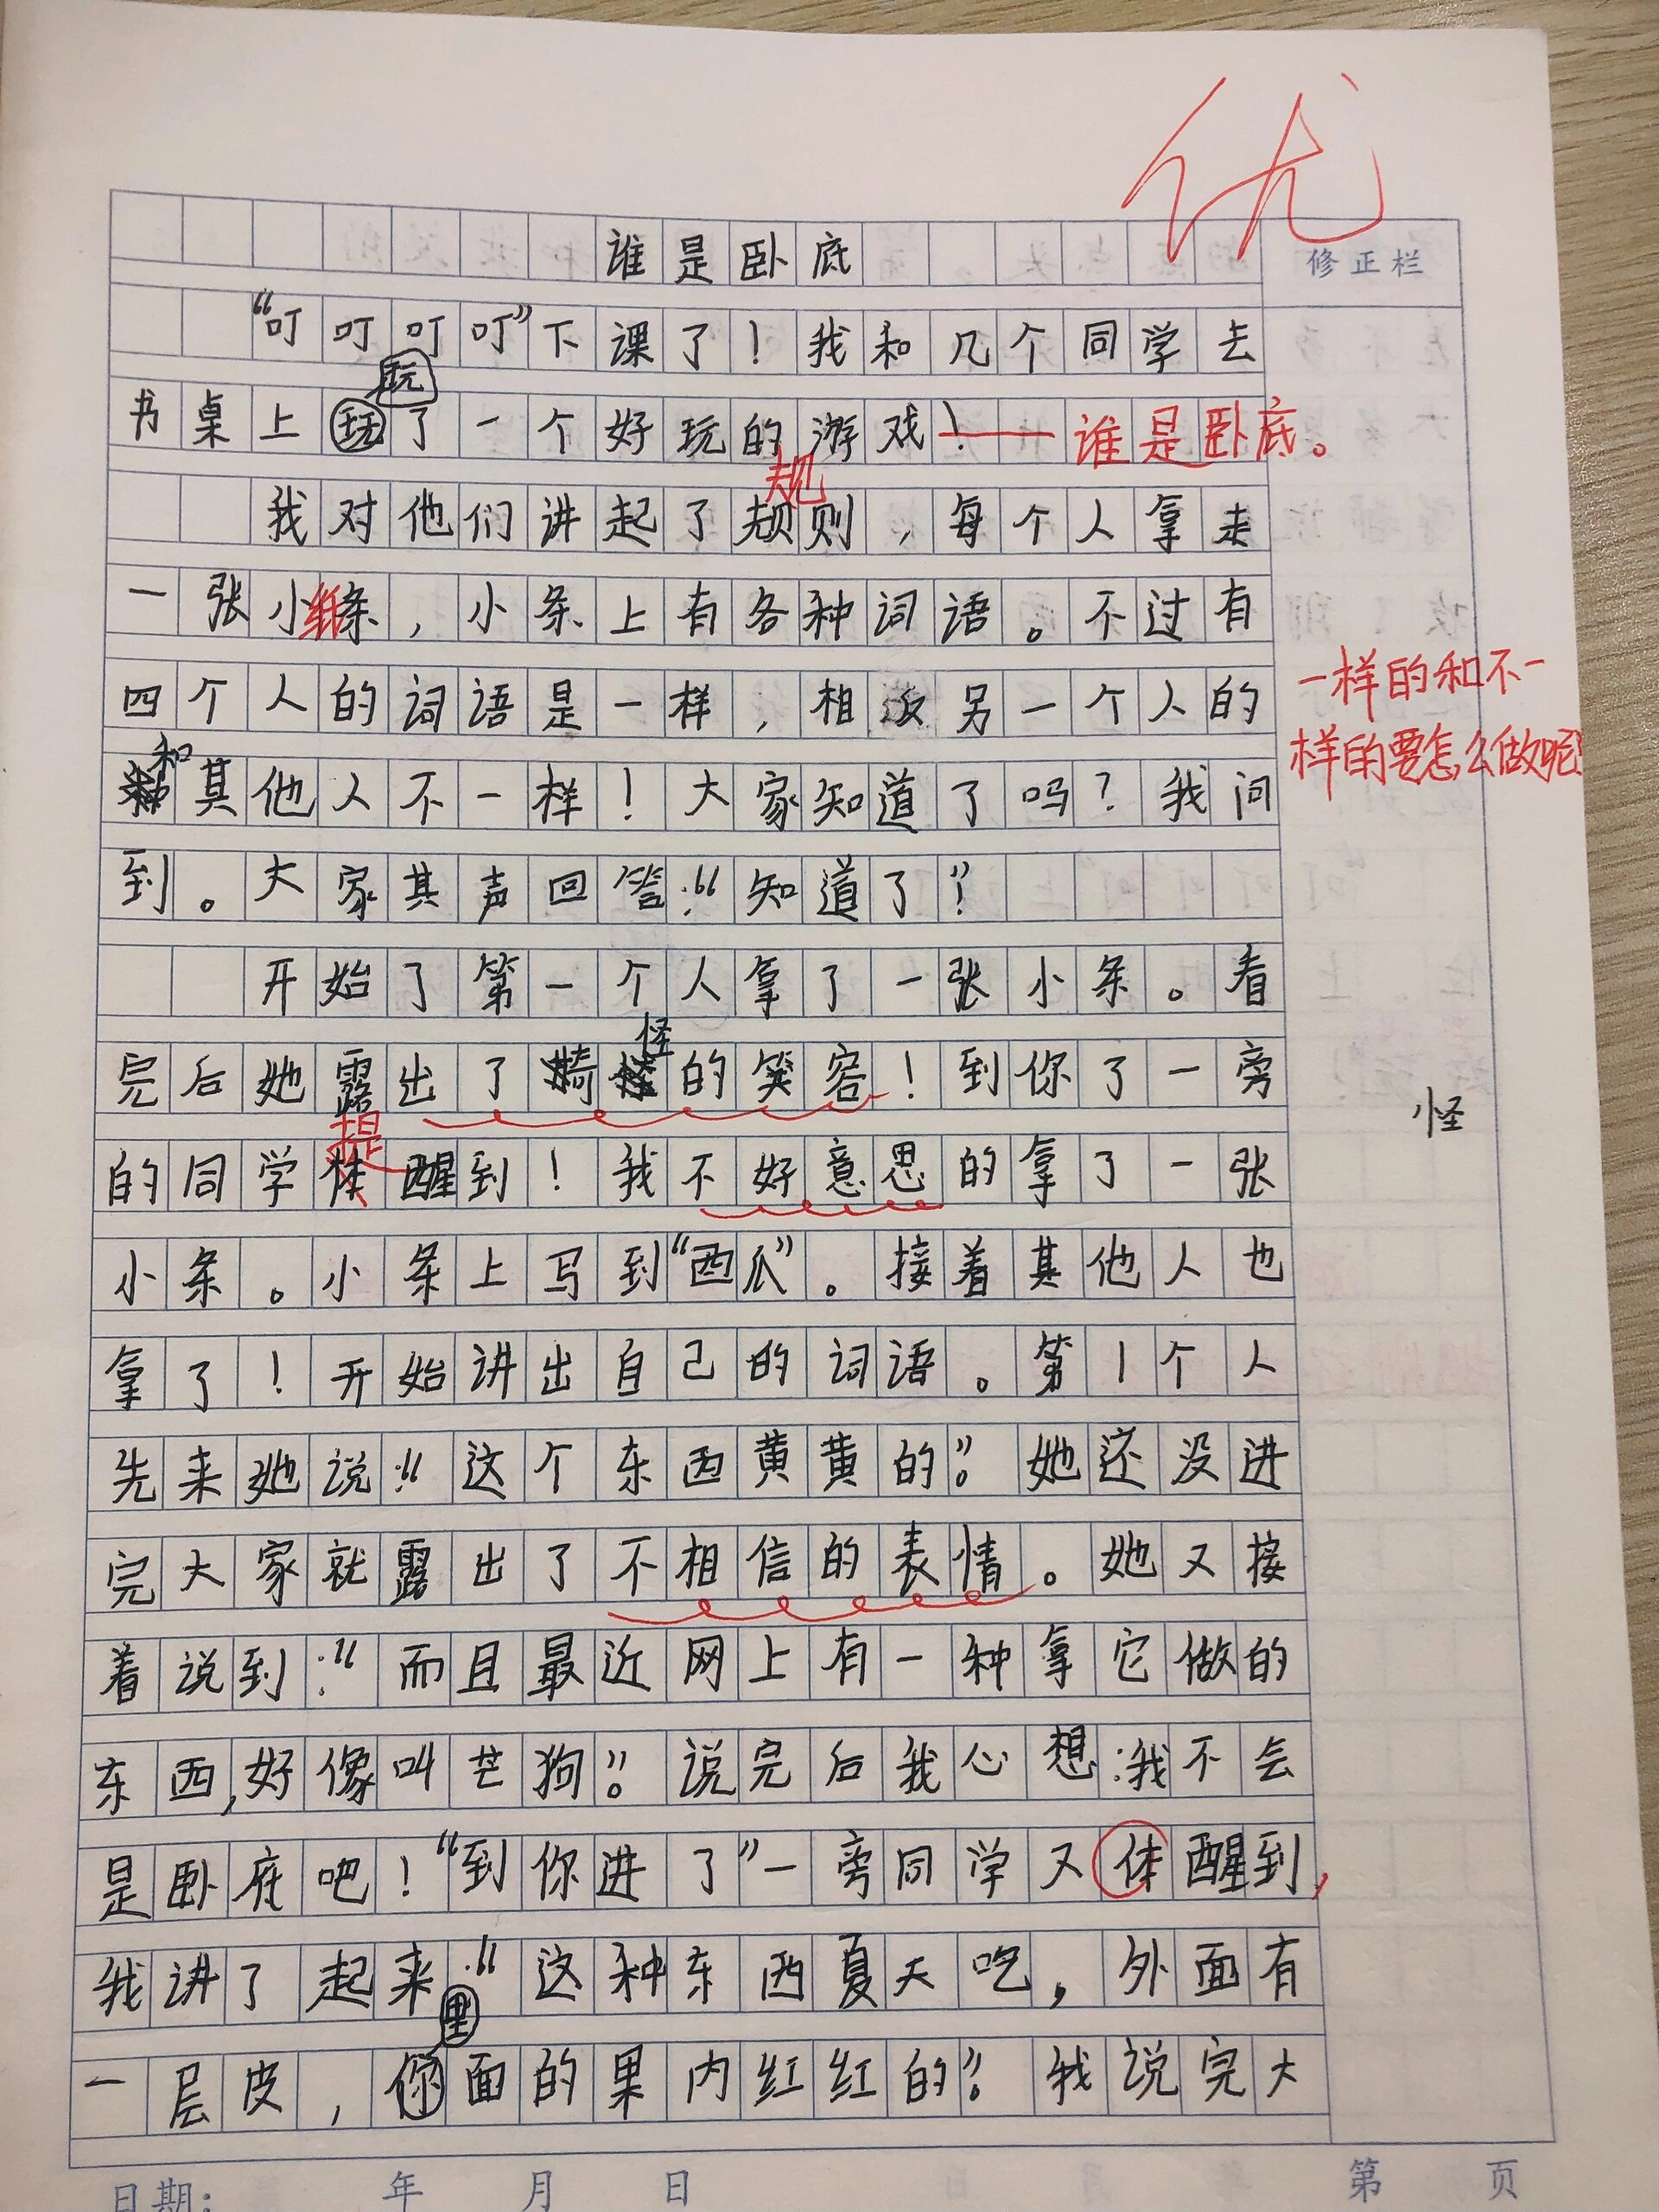 优
谁是卧底
修正栏
“叮叮叮叮”下课了！我和几个同学去
玩
书桌上玩了一个好玩的游戏！——谁是卧底。
规
我对他们讲起了规则，每个人拿走
一张小纸条，小条上有各种词语。不过有
四个人的词语是一样，相反另一个人的
一样的和不一
样的要怎么做呢?
和
其他人不一样！大家知道了吗？我问
到。大家其声回答：“知道了”！
开始了第一个人拿了一张小条。看
怪
完后她露出了的笑容！到你了一旁
怪
提
的同学体醒到！我不好意思的拿了一张
小条。小条上写到“西瓜”。接着其他人也
拿了！开始讲出自己的词语。第1个人
先来她说：“这个东西黄黄的”。她还没进
完大家就露出了不相信的表情。她又接
着说到：“而且最近网上有一种拿它做的
东西,好像叫芒狗”。说完后我心想：我不会
是卧底吧！“到你进了”一旁同学又体醒到，
我讲了起来：“这种东西夏天吃，外面有
里
一层皮，你面的果内红红的”。我说完大
日期： 年 月 日
第 页